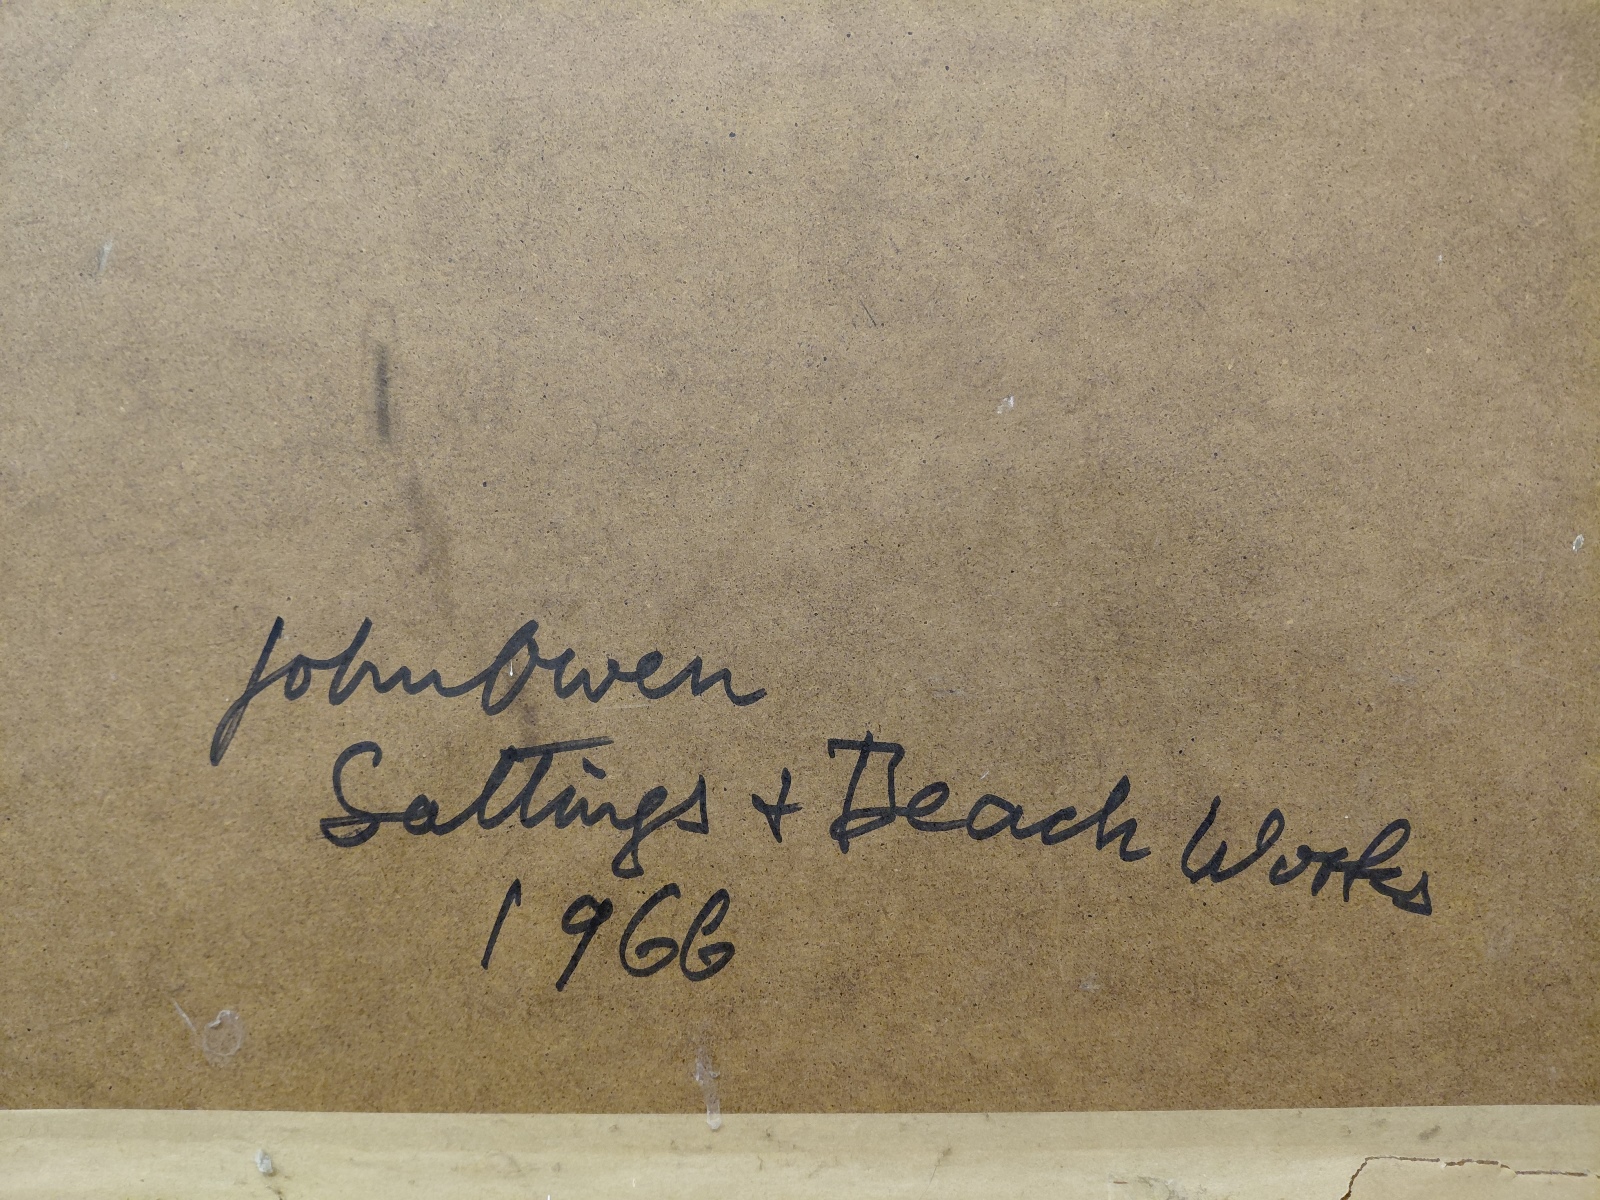 John Owen
Saltings + Beach Works
1966